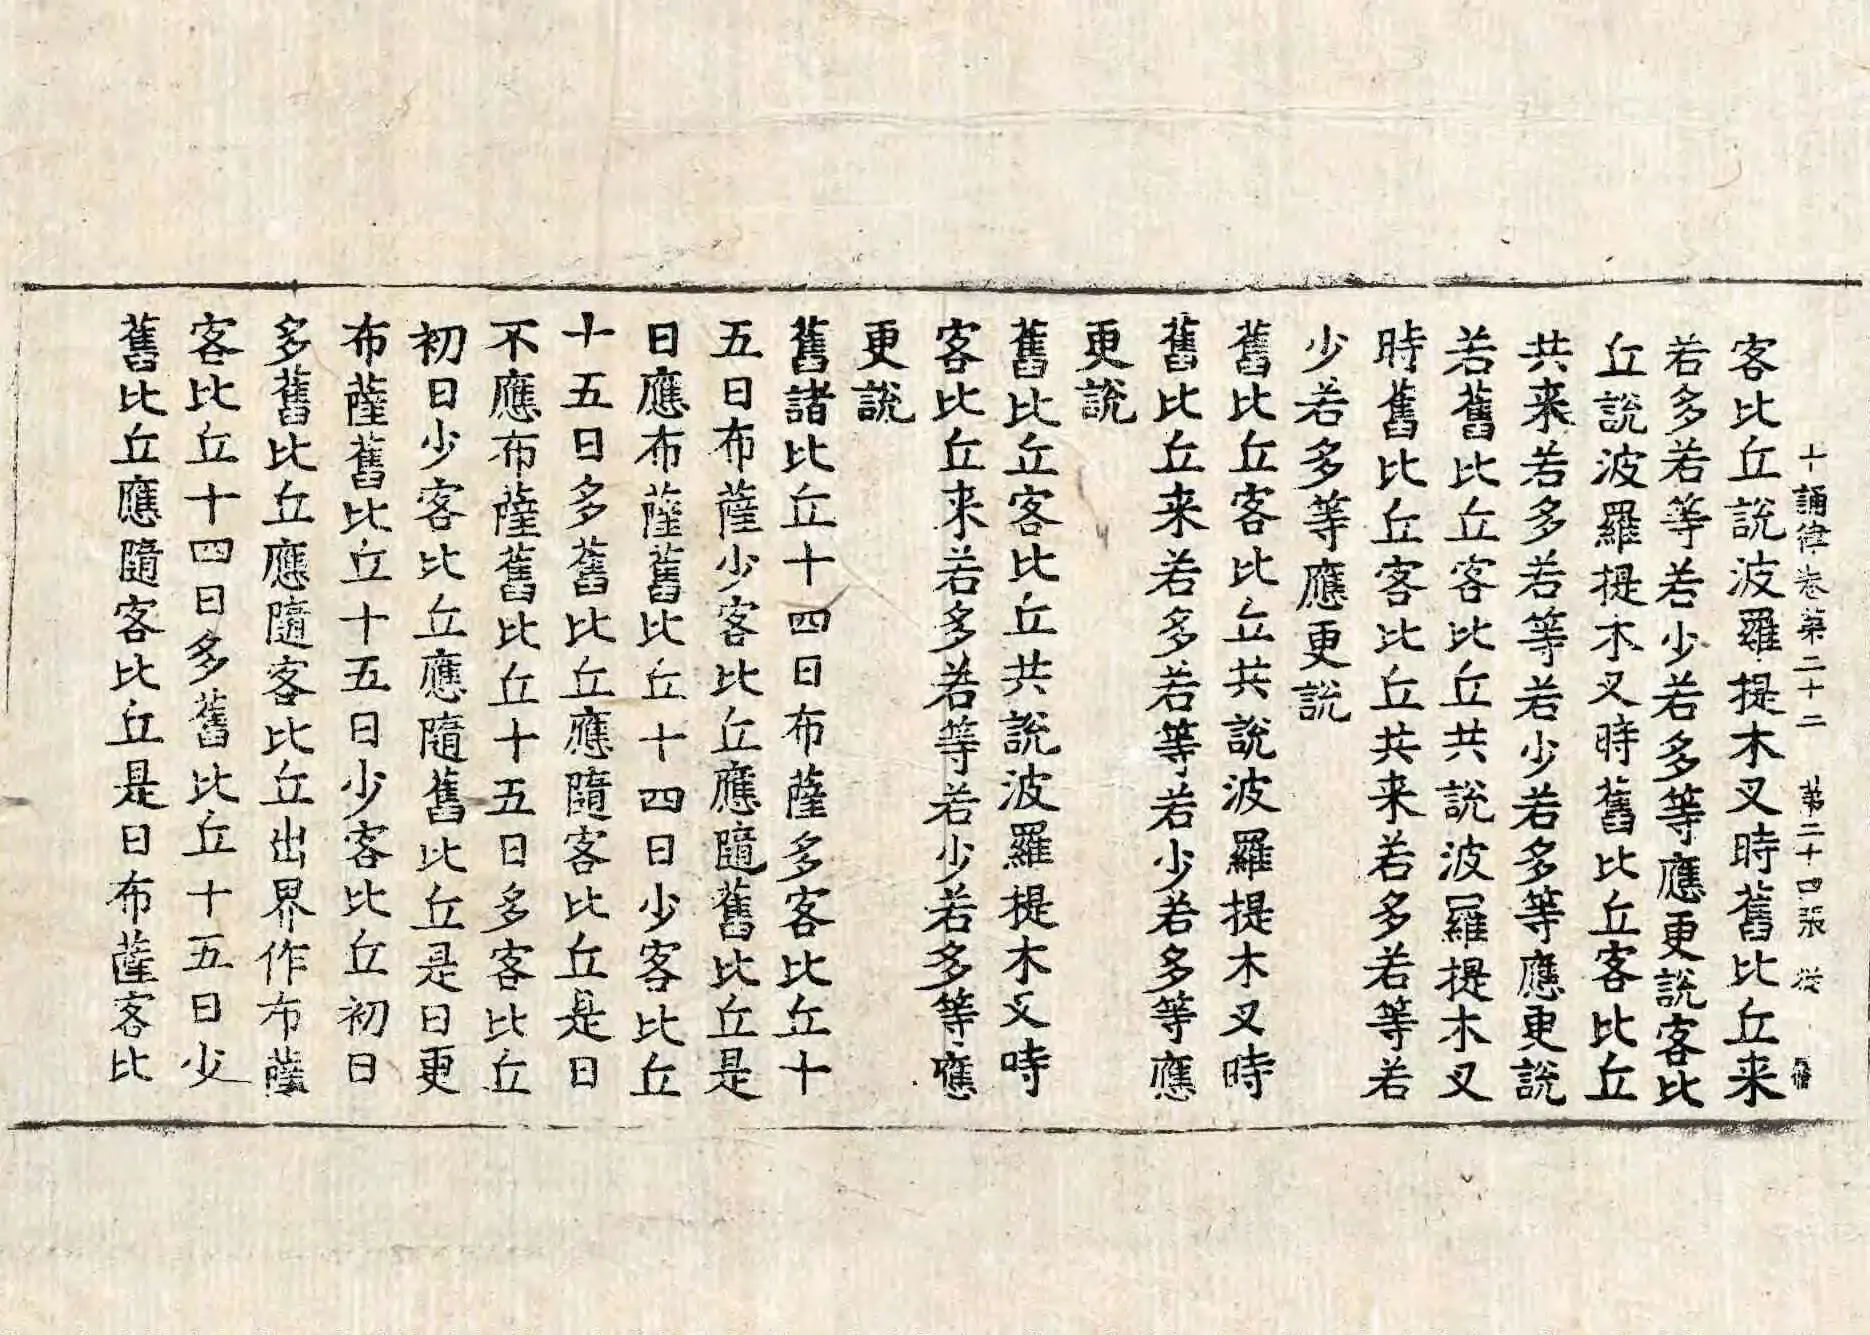 十誦律卷第二十二　第二十四張　從
客比丘說波羅提木叉時舊比丘来
若多若等若少若多等應更說客比
丘說波羅提木叉時舊比丘客比丘
共来若多若等若少若多等應更說
若舊比丘客比丘共說波羅提木叉
時舊比丘客比丘共来若多若等若
少若多等應更說
舊比丘客比丘共說波羅提木叉時
舊比丘来若多若等若少若多等應
更說
舊比丘客比丘共說波羅提木叉時
客比丘来若多若等若少若多等應
更說
舊諸比丘十四日布薩多客比丘十
五日布薩少客比丘應隨舊比丘是
日應布薩舊比丘十四日少客比丘
十五日多舊比丘應隨客比丘是日
不應布薩舊比丘十五日多客比丘
初日少客比丘應隨舊比丘是日更
布薩舊比丘十五日少客比丘初日
多舊比丘應隨客比丘出界作布薩
客比丘十四日多舊比丘十五日少
舊比丘應隨客比丘是日布薩客比